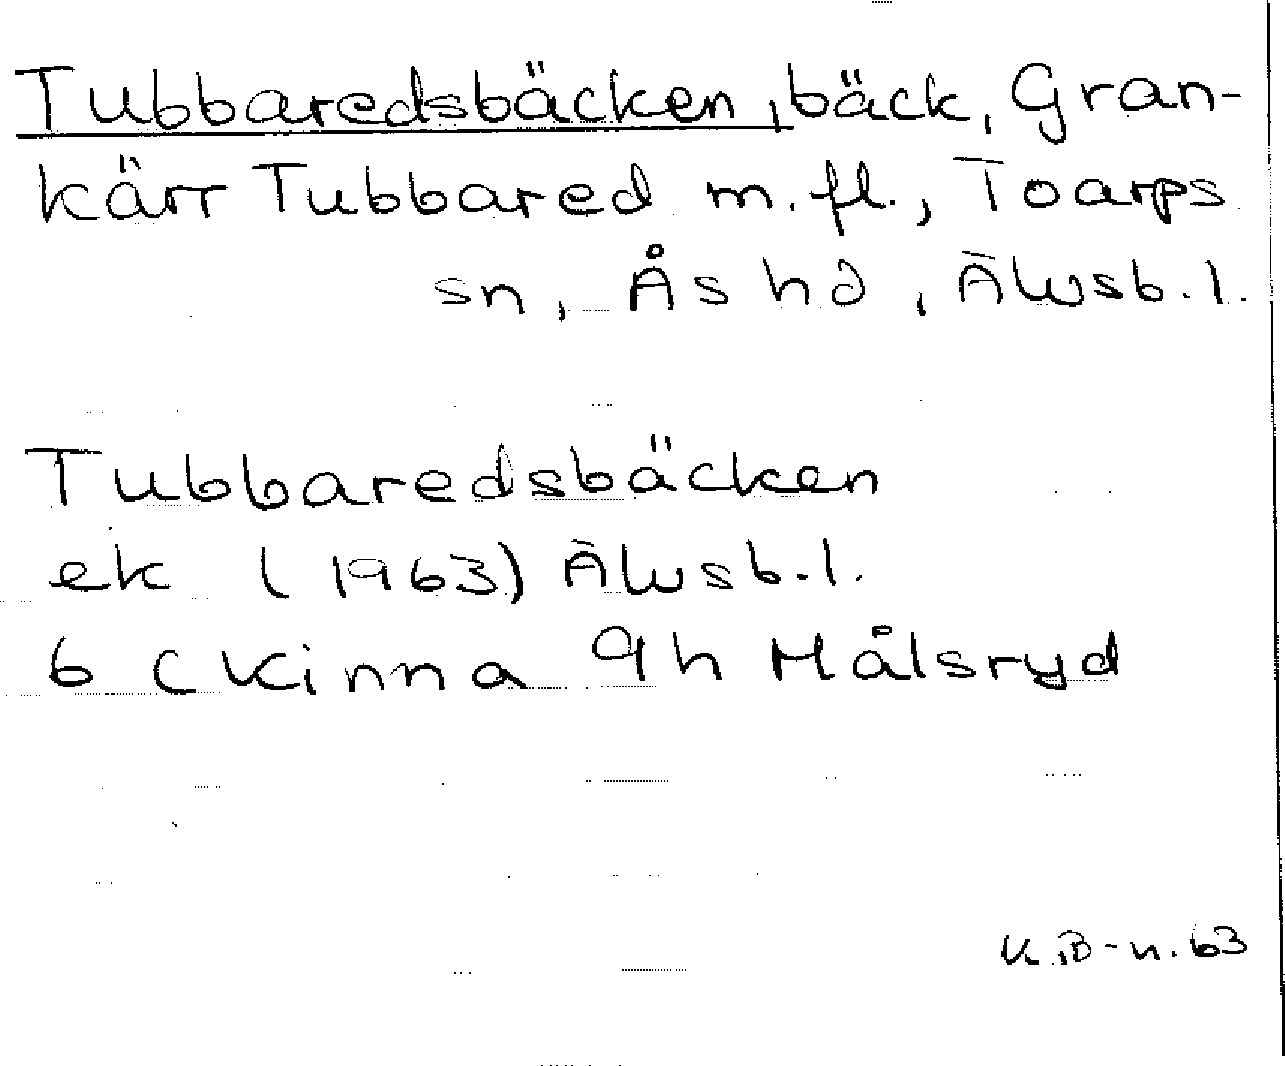 Tubbaredsbäcken, bäck, Gran-
kärr Tubbared m. fl., Toarps
sn, Ås hd, Älvsb. l.
Tubbaredsbäcken
ek (1963) Älvsb. l.
6 C Kinna 9h Målsryd
K.B-n. 63